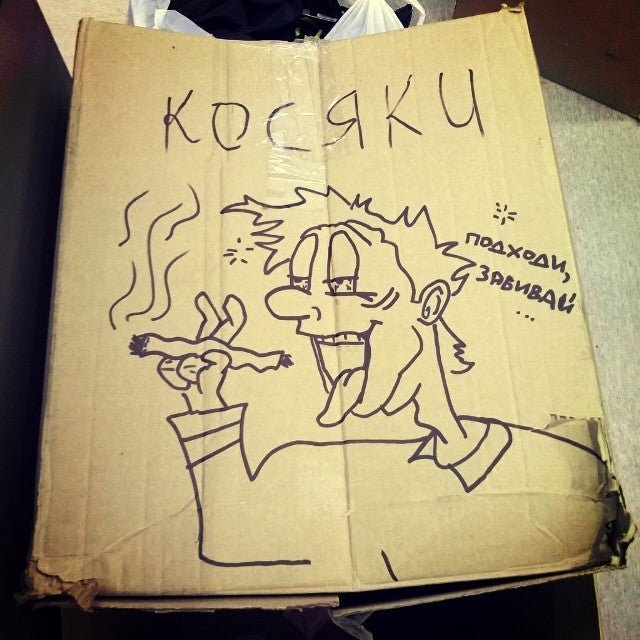 КОСЯКИ
ПОДХОДИ,
ЗАБИВАЙ
...